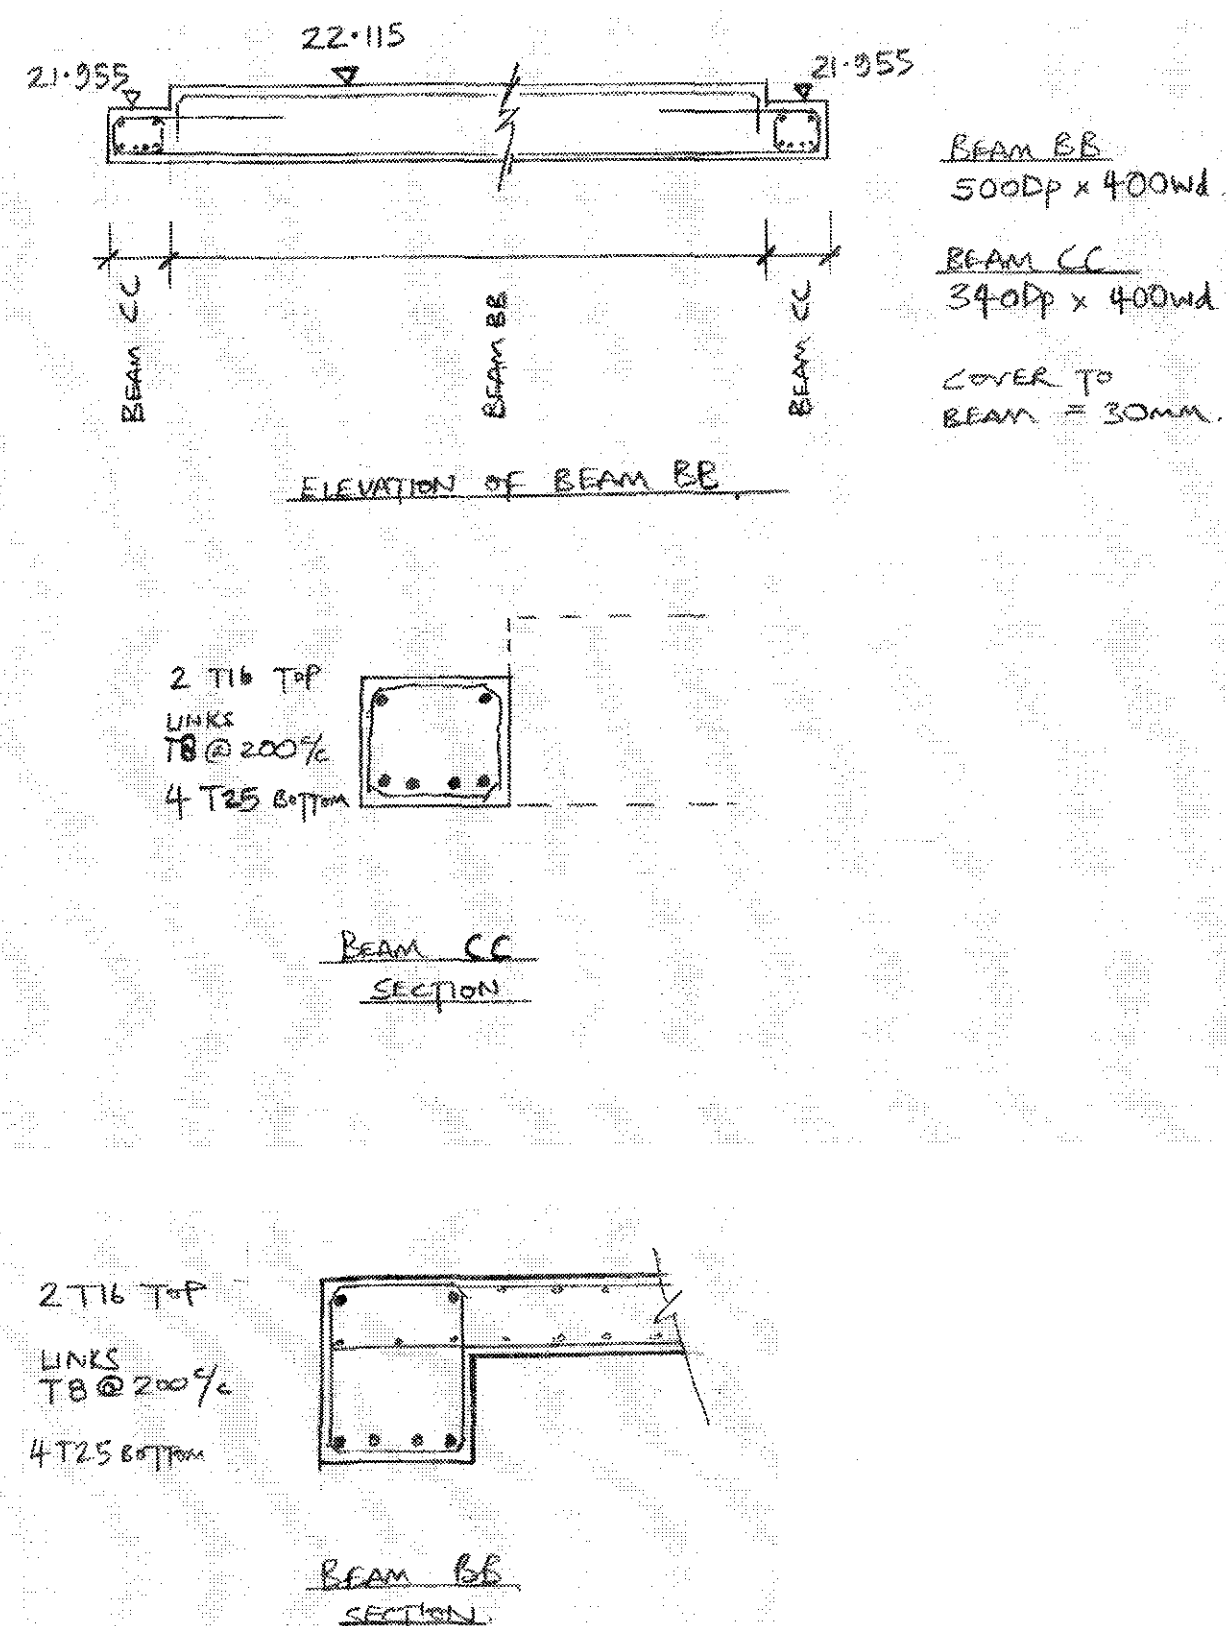 22.115
21.955
21.955
BEAM BB
500Dp x 400wd.
BEAM CC
340Dp x 400wd
COVER TO
BEAM = 30mm.
BEAM CC
BEAM BB
BEAM CC
ELEVATION OF BEAM BB.
2 T16 TOP
LINKS
T8 @ 200 c/c
4 T25 BOTTOM
BEAM CC
SECTION
2 T16 TOP
LINKS
T8 @ 200 c/c
4 T25 BOTTOM
BEAM BB
SECTION